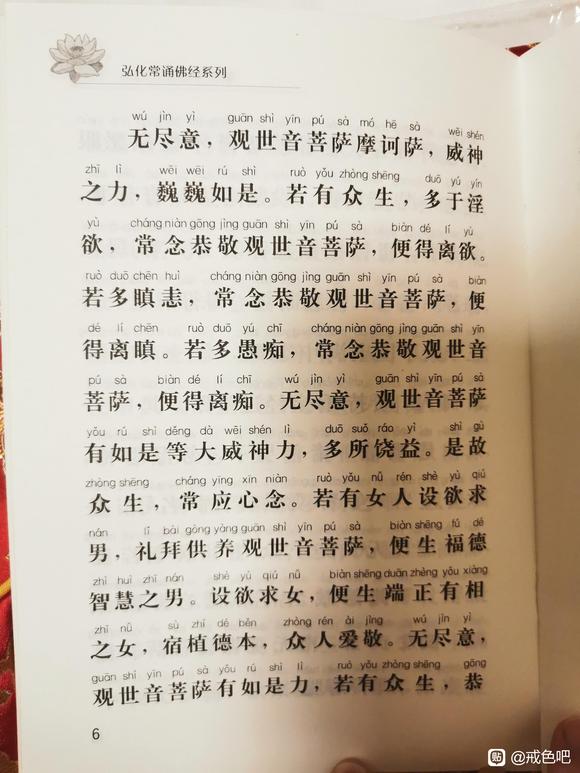 弘化常诵佛经系列
wú jìn yì guān shì yīn pú sà mó hē sà wēi shén
无尽意，观世音菩萨摩诃萨，威神
zhī lì wēi wēi rú shì ruò yǒu zhòng shēng duō yú yín
之力，巍巍如是。若有众生，多于淫
yù cháng niàn gōng jìng guān shì yīn pú sà biàn dé lí yù
欲，常念恭敬观世音菩萨，便得离欲。
ruò duō chēn huì cháng niàn gōng jìng guān shì yīn pú sà biàn
若多瞋恚，常念恭敬观世音菩萨，便
dé lí chēn ruò duō yú chī cháng niàn gōng jìng guān shì yīn
得离瞋。若多愚痴，常念恭敬观世音
pú sà biàn dé lí chī wú jìn yì guān shì yīn pú sà
菩萨，便得离痴。无尽意，观世音菩萨
yǒu rú shì děng dà wēi shén lì duō suǒ ráo yì shì gù
有如是等大威神力，多所饶益。是故
zhòng shēng cháng yīng xīn niàn ruò yǒu nǚ rén shè yù qiú
众生，常应心念。若有女人设欲求
nán lǐ bài gòng yàng guān shì yīn pú sà biàn shēng fú dé
男，礼拜供养观世音菩萨，便生福德
zhì huì zhī nán shè yù qiú nǚ biàn shēng duān zhèng yǒu xiàng
智慧之男。设欲求女，便生端正有相
zhī nǚ sù zhí dé běn zhòng rén ài jìng wú jìn yì
之女，宿植德本，众人爱敬。无尽意，
guān shì yīn pú sà yǒu rú shì lì ruò yǒu zhòng shēng gōng
观世音菩萨有如是力，若有众生，恭
6
贴 @戒色吧